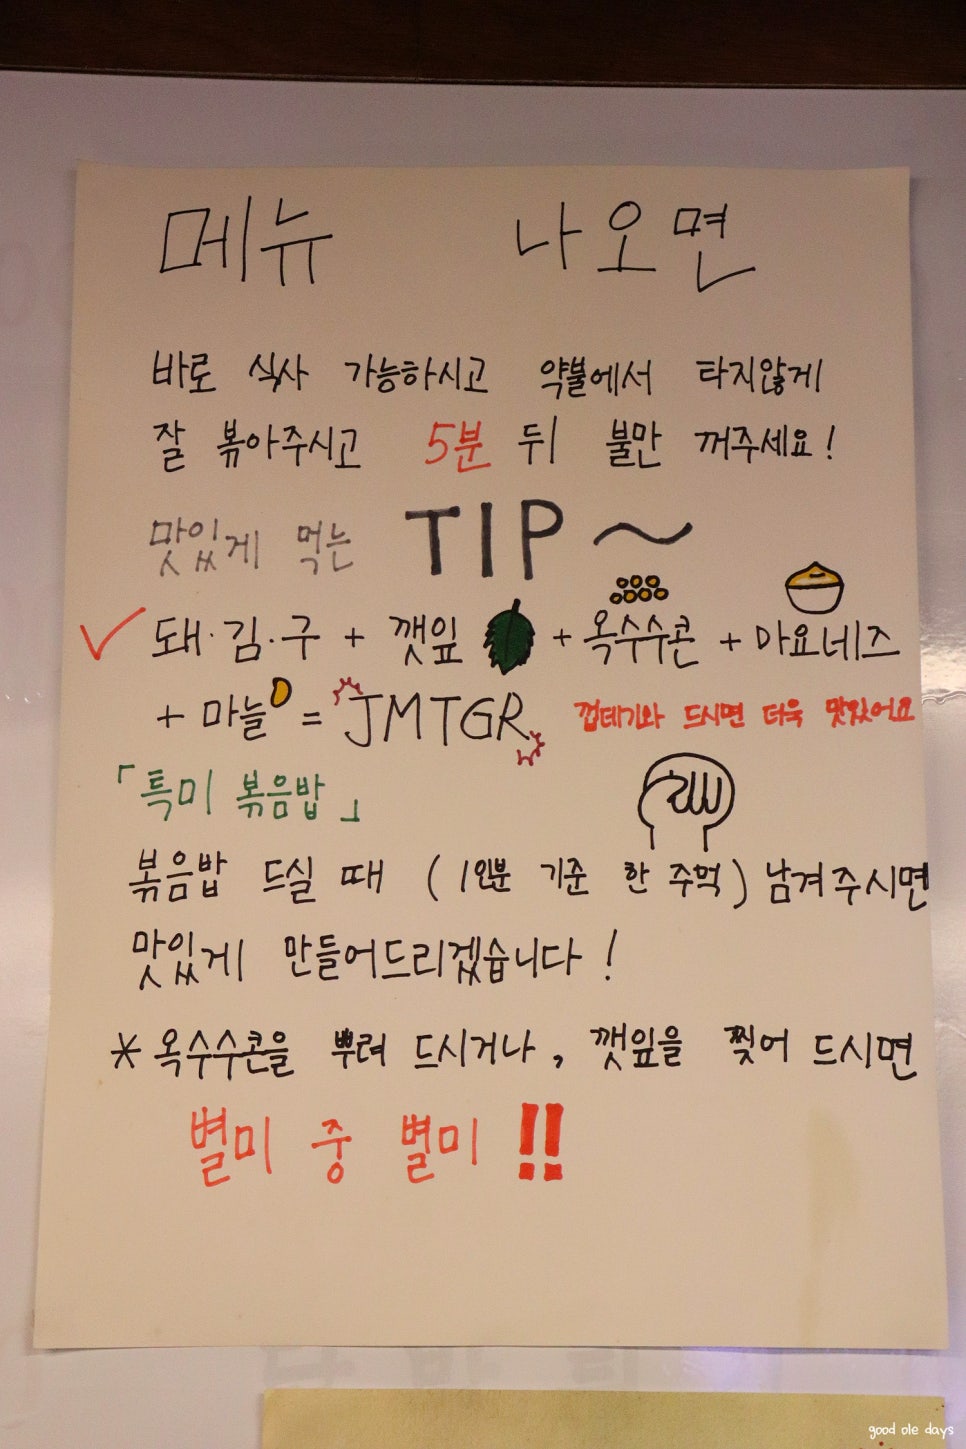 메뉴 나오면
바로 식사 가능하시고 약불에서 타지않게
잘 볶아주시고 5분 뒤 불만 꺼주세요!
맛있게 먹는 TIP~
✓ 돼·김·구 + 깻잎 + 옥수수콘 + 마요네즈
+ 마늘 = JMTGR 껍데기와 드시면 더욱 맛있어요
「특미 볶음밥」
볶음밥 드실 때 (1인분 기준 한 주먹) 남겨주시면
맛있게 만들어드리겠습니다!
* 옥수수콘을 뿌려 드시거나, 깻잎을 찢어 드시면
별미 중 별미!!
good ole days